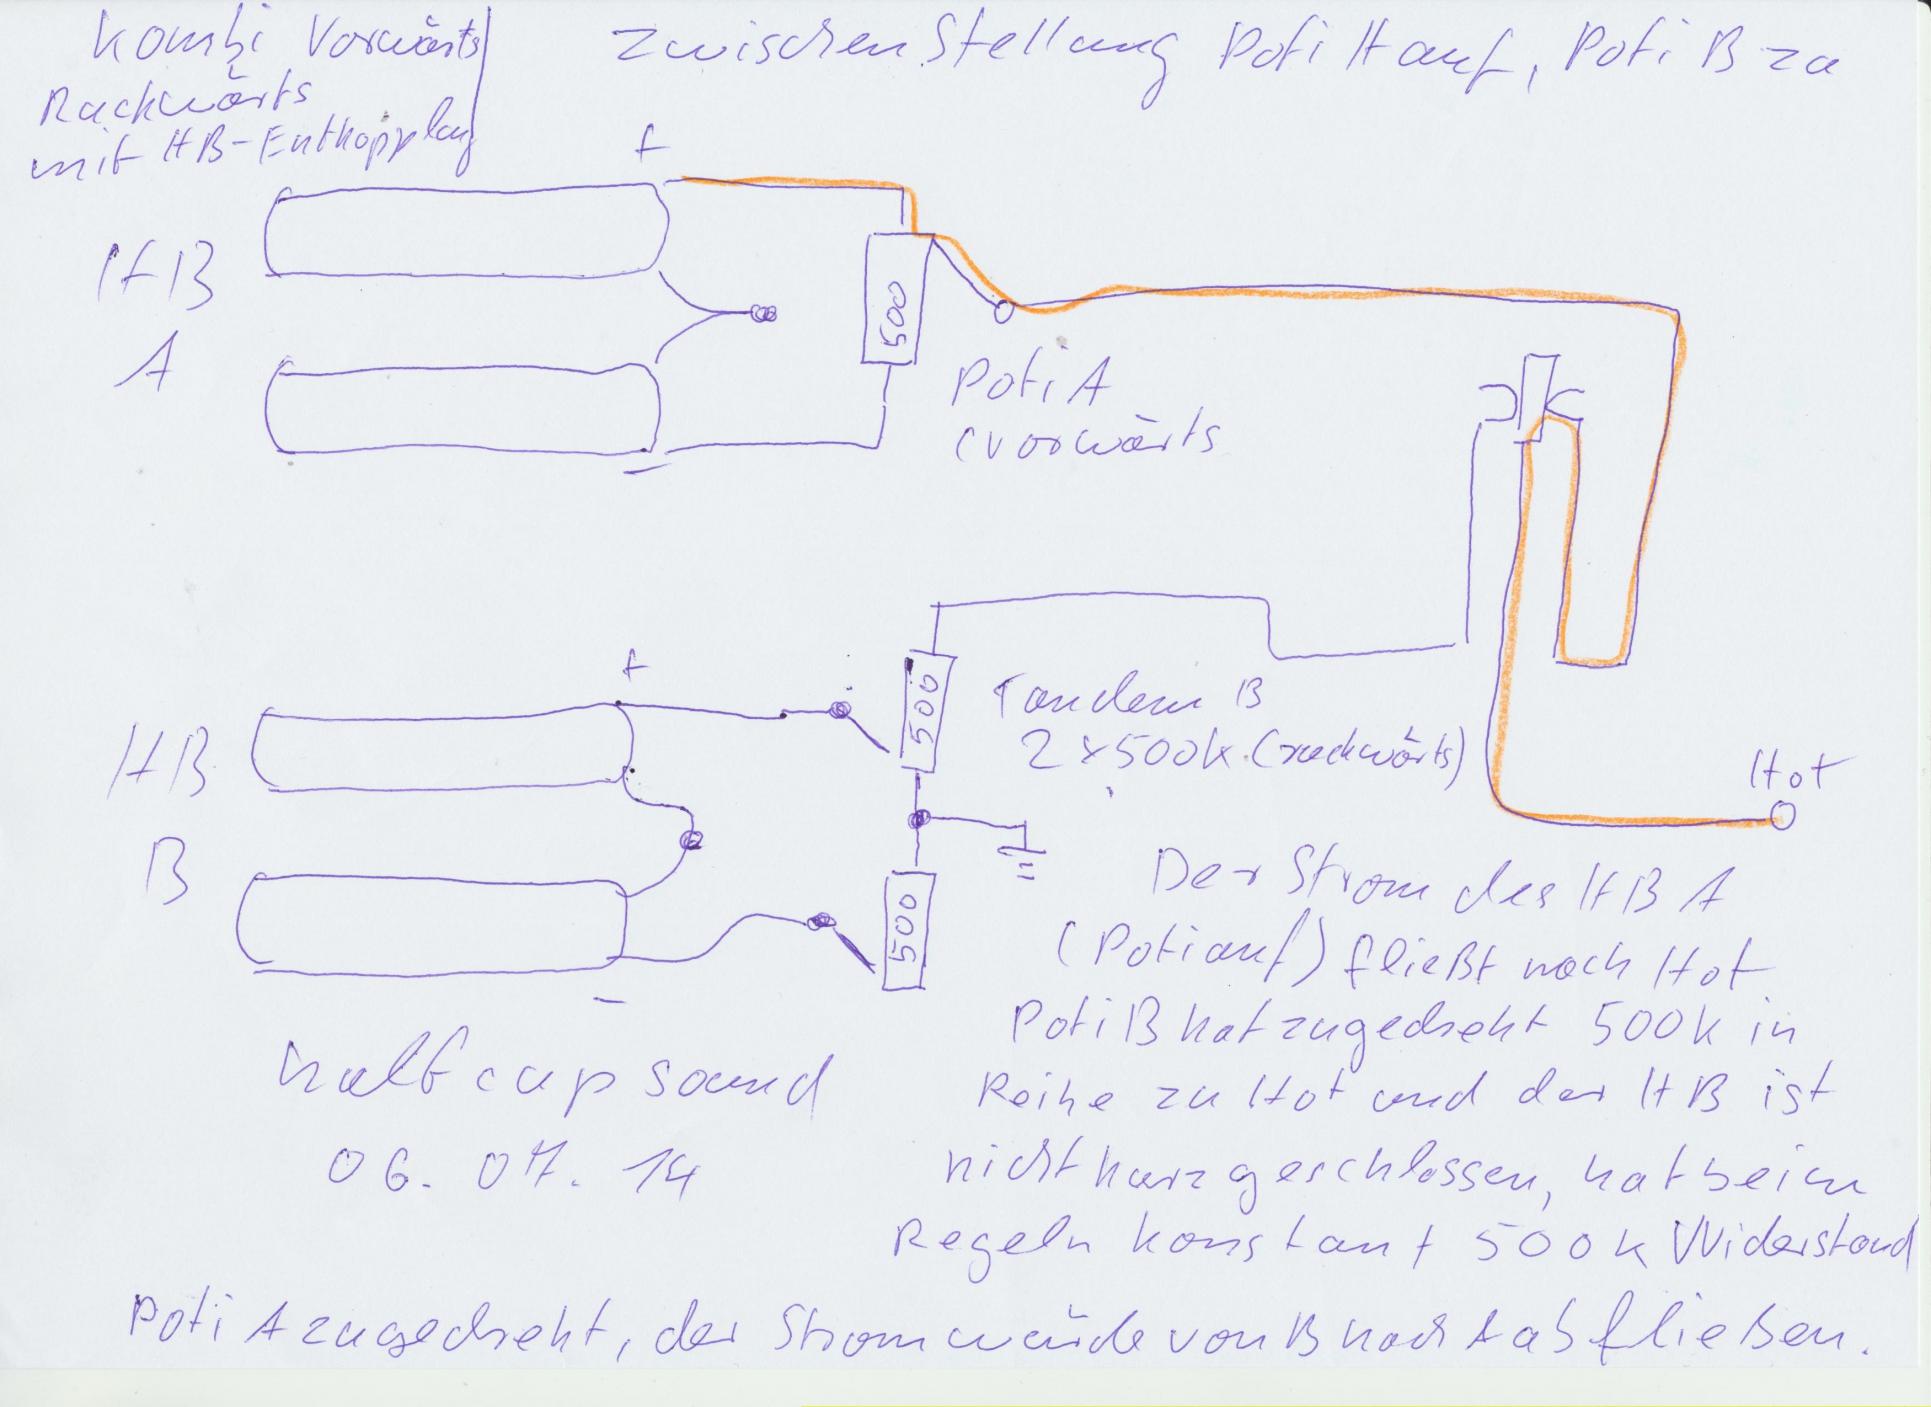 Kombi Vorwärts
Rückwärts
mit HB-Entkopplung
Zwischenstellung Poti A auf, Poti B zu
+
HB
A
500
Poti A
(vorwärts
-
+
HB
B
500
Tandem B
2x500k (rückwärts)
Hot
500
-
Der Strom des HB A
(Poti auf) fließt nach Hot
Poti B hat zugedreht 500k in
Reihe zu Hot und der HB ist
nicht kurzgeschlossen, hat beim
Regeln konstant 500k Widerstand
halfcupsound
06. 07. 14
Poti A zugedreht, der Strom würde von B nach A abfließen.